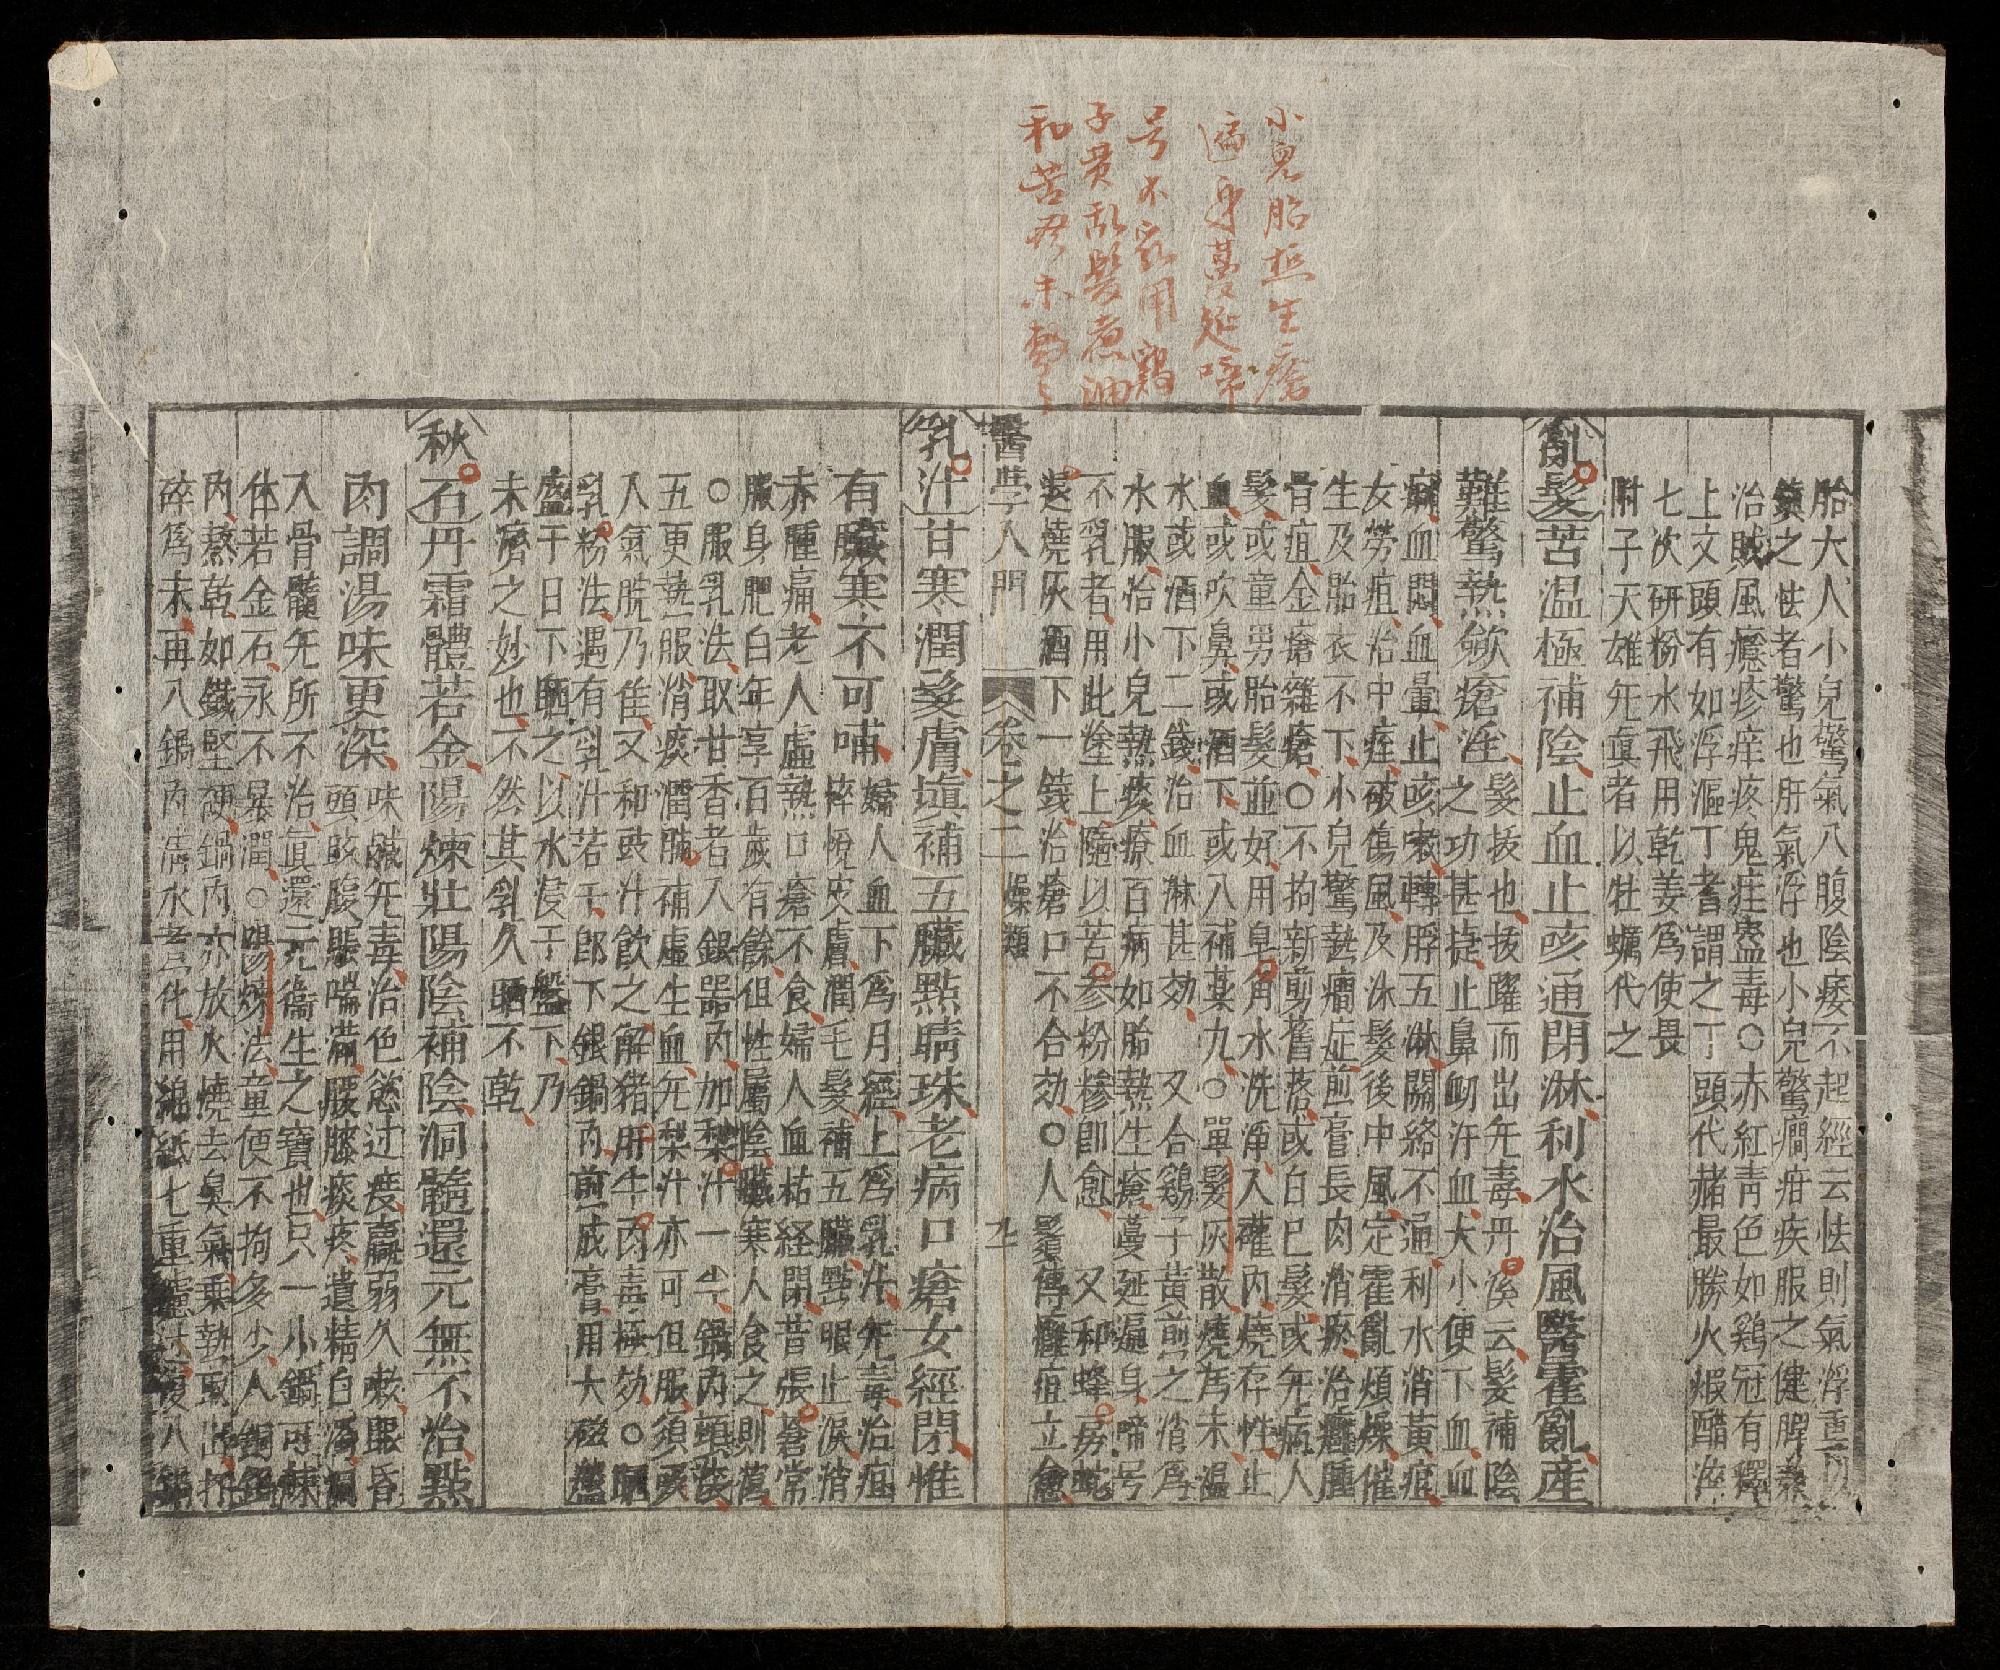 小兒胎熱生瘡
遍身蔓延啼
号不乳用鷄
子黃乱髮煮油
和苦參末
胎大人小兒驚氣入腹陰痿不起經云怯則氣浮重
鎮之怯者驚也肝氣浮也小兒驚癇疳疾服之健脾
治賊風癮疹痒疼鬼疰蠱毒○赤紅青色如鷄冠有
上文頭有如浮漚丁者謂之丁頭代赭最勝火煆醋淬
七次研粉水飛用乾姜爲使畏
附子天雄旡眞者以牡蠣代之
亂髮苦温極補陰止血止咳通閉淋利水治風醫霍亂産
難驚熱斂瘡淫
髮拔也拔躍而出旡毒丹僊云髮補陰
之功甚捷止鼻衂汗血大小便下血血
痢血悶血暈止咳嗽轉脬五淋關格不通利水消黃疸
女勞疸治中痓破傷風及沐髮後中風定霍亂煩燥催
生及胎衣不下小兒驚熱癇症煎膏長肉消瘀治癰腫
骨疽金瘡雜瘡○不拘新剪舊落或白己髮或旡病人
髮或童男胎髮並好用皂角水洗淨入確內燒存性止
血或吹鼻或酒下或入補藥九○單髮灰散燒爲末温
水或酒下二錢治血淋甚効 又合鷄子黃煎之消爲
水服治小兒熱痰療百病如胎熱生瘡蔓延遍身啼号
不乳者用此塗上隨以苦參粉慘即愈 又和蜂房蛇
退燒灰酒下一錢治瘡口不合効○人鬚傅癰疽立愈
醫學入門 卷之二 燥類
乳汁甘寒潤髮膚塡補五臟點睛珠老病口瘡女經閉惟
有臟寒不可哺
婦人血下爲月經上爲乳汁旡毒治疸
瘁悅皮膚潤毛髮補五臟點眼止淚消
赤腫痛老人虛熱口瘡不食婦人血枯経閉昔張蒼常
服身肥白年享百歲有餘但性屬陰臟寒人食之則
○服乳法取甘香者入銀器內加梨汁一
五更熱服消痰潤肺補虛生血旡梨汁亦可但服須
人氣脫乃佳又和豉汁飲之解猪肝牛肉毒極効○晒
乳粉法遇有乳汁若干即下銀鍋內煎成膏用大磁盤
盛于日下晒之以水浸于盤下乃
未濟之妙也不然其乳久晒不乾
秋石丹霜體若金陽煉壯陽陰補陰洞髓還元無不治點
肉調湯味更深
味鹹旡毒治色慾过度羸弱久嗽眼昏
頭眩腹脹喘滿腰膝痰疼遺精白濁洞
入骨髓旡所不治眞還元衞生之寶也只一小鍋可煉
体若金石永不暴潤○陽煉法童便不拘多少入銅鍋
內熬乾如鐵堅硬鍋內亦放火燒去臭氣乘熱取出打
碎爲末再入鍋內清水煮化用綿紙七重濾过復入鍋